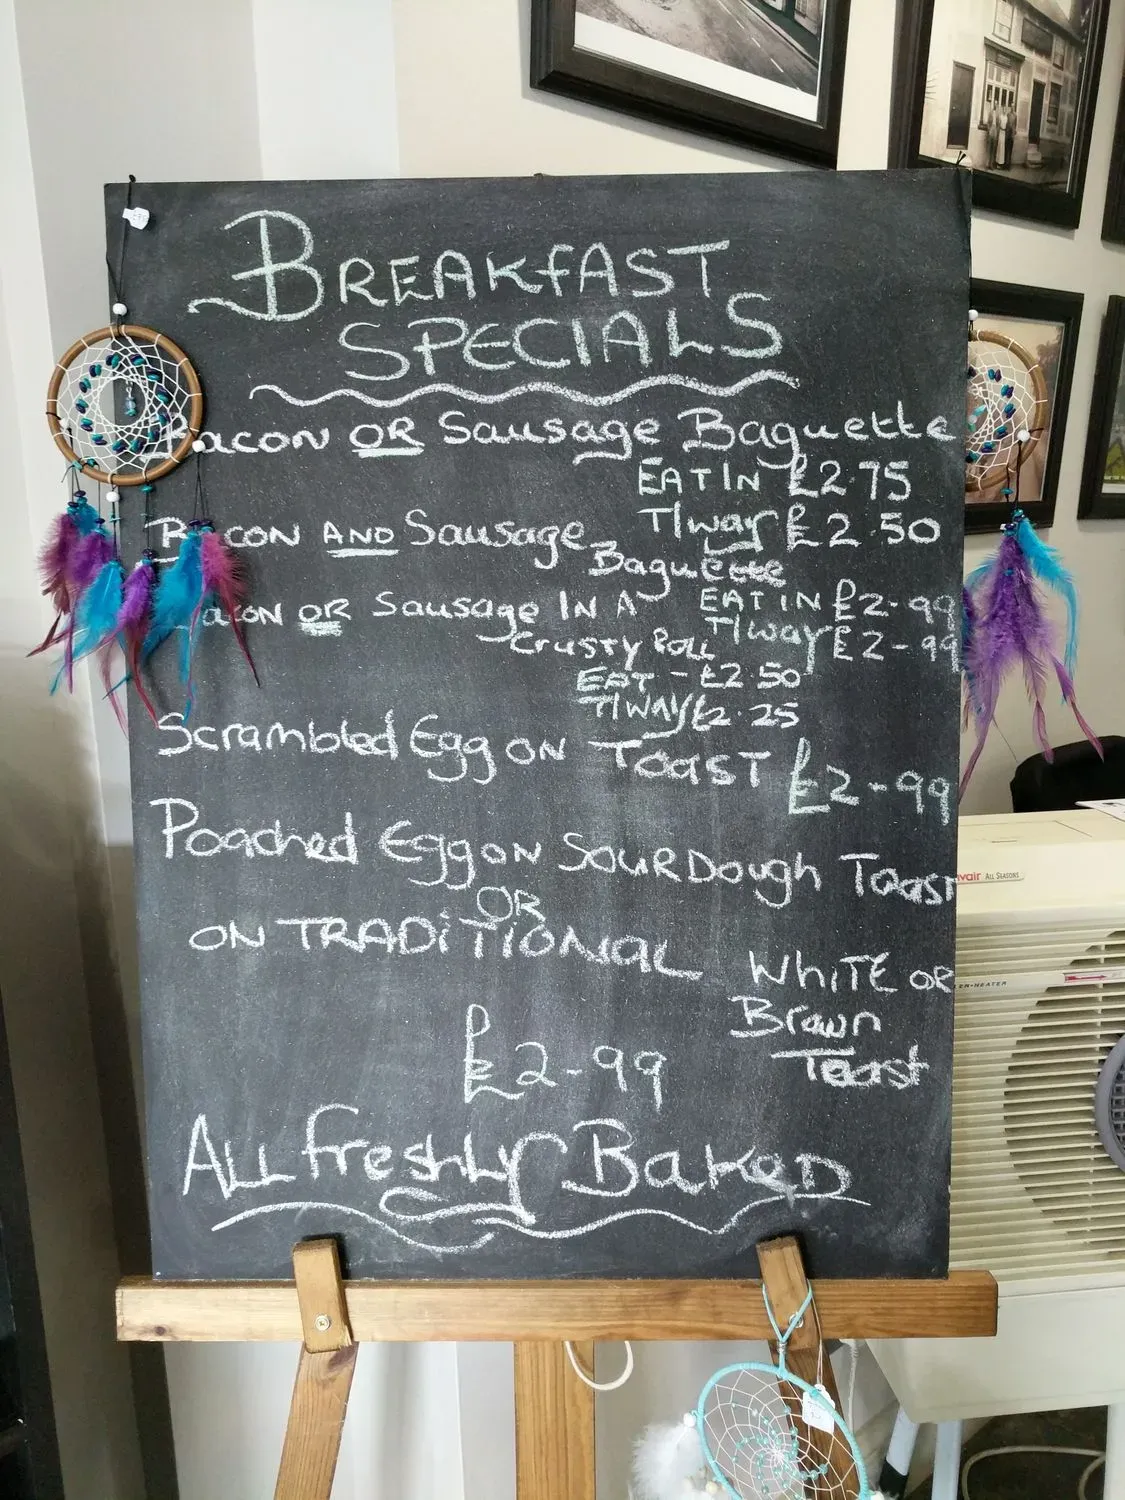 BREAKFAST
SPECIALS
Bacon OR Sausage Baguette
EAT IN £2.75
T/way £2.50
Bacon AND Sausage
Baguette
EAT IN £2-99
T/way £2-99
Bacon OR Sausage IN A
Crusty ROLL
EAT - £2.50
T/WAY £2.25
Scrambled Egg ON TOAST £2-99
Poached Egg ON SOURDough Toast
OR
ON TRADITIONAL
WHITE OR
Brown
Toast
£2-99
ALL freshLy BakeD
vair ALL SEASONS
ER-HEATER